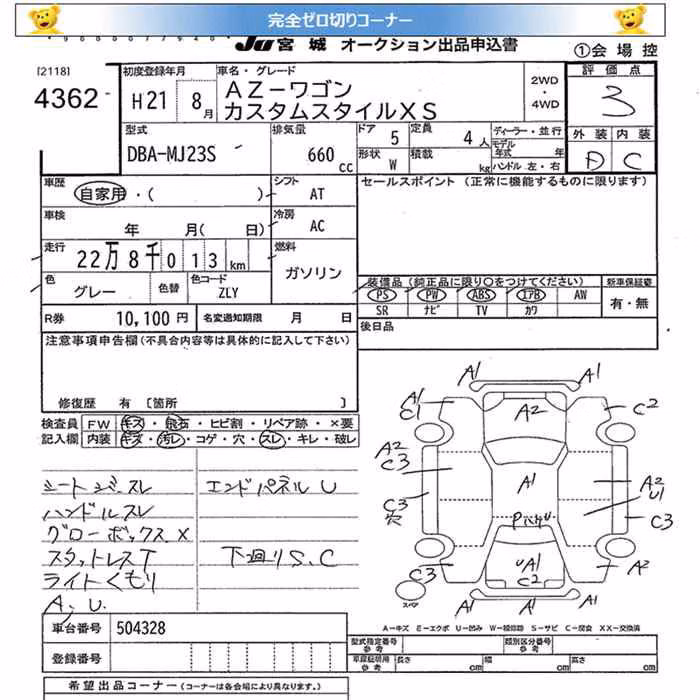 完全ゼロ切りコーナー
JU 宮城 オークション出品申込書
①会場控
[2118]
4362
初度登録年月
H21 8月
車名・グレード
AZーワゴン
カスタムスタイルXS
2WD
・
4WD
評価点
3
外装 内装
D C
型式
DBA-MJ23S
排気量
660 cc
ドア 5
定員 4人
形状 W
積載 kg
ディーラー・並行
モデル年式 年
ハンドル 左・右
車歴
自家用・( )
シフト AT
セールスポイント (正常に機能するものに限ります)
車検
年 月( 日)
冷房 AC
走行
22万8千013km
燃料
ガソリン
色 グレー
色替
色コード ZLY
装備品 (純正品に限り○をつけてください)
PS PW ABS エアB AW
SR ナビ TV カワ
新車保証書
有・無
R券 10,100円
名変通知期限 月 日
後日品
注意事項申告欄(不具合内容等は具体的に記入して下さい)
修復歴 有 [箇所 ]
検査員記入欄
FW キズ・飛石・ヒビ割・リペア跡・×要
内装 キズ・汚レ・コゲ・穴・スレ・キレ・破レ
シートシミ.スレ
エンドパネルU
ハンドルスレ
グローボックスX
スタットレスT
下廻りS.C
ライトくもり
A.U.
A1
A1
A1
C1
A2
C2
A2
C3
A1
A2
U1
C3
穴
C3
PハゲU
UA1
C2
C3
A2
A1
A1
スペア
A-キズ E-エクボ U-凹み W-補修跡 S-サビ C-腐食 XX-交換済
車台番号 504328
登録番号
型式指定番号
参考
類別区分番号
参考
車庫証明用
参考
長さ cm
幅 cm
高さ cm
希望出品コーナー (コーナーは各会場により異なります。)